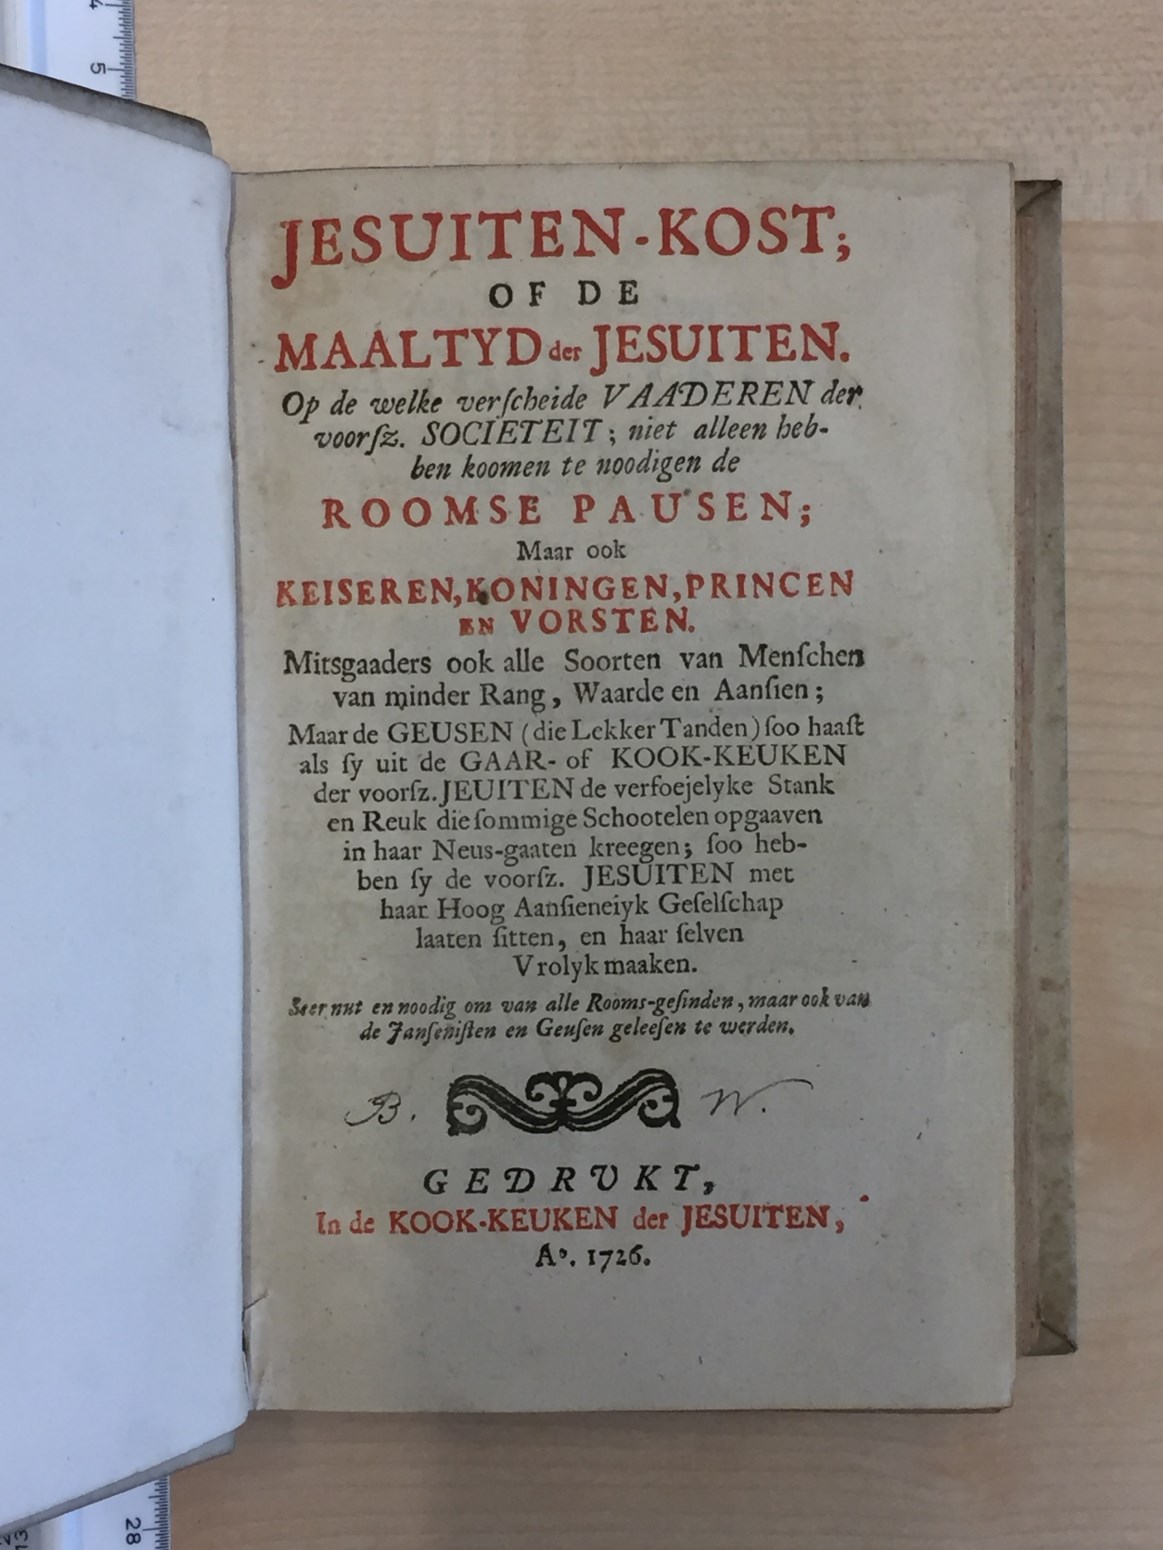 JESUITEN-KOST;
OF DE
MAALTYD der JESUITEN.
Op de welke verſcheide VAADEREN der
voorſz. SOCIETEIT; niet alleen heb-
ben koomen te noodigen de
ROOMSE PAUSEN;
Maar ook
KEISEREN, KONINGEN, PRINCEN
EN VORSTEN.
Mitsgaaders ook alle Soorten van Menſchen
van minder Rang, Waarde en Aanſien;
Maar de GEUSEN (die Lekker Tanden) ſoo haaſt
als ſy uit de GAAR- of KOOK-KEUKEN
der voorſz. JEUITEN de verfoejelyke Stank
en Reuk die ſommige Schootelen opgaaven
in haar Neus-gaaten kreegen; ſoo heb-
ben ſy de voorſz. JESUITEN met
haar Hoog Aanſieneiyk Geſelſchap
laaten ſitten, en haar ſelven
Vrolyk maaken.
Seer nut en noodig om van alle Rooms-geſinden, maar ook van
de Janſeniſten en Geuſen geleeſen te werden.
B. W.
GEDRUKT,
In de KOOK-KEUKEN der JESUITEN,
Aº. 1726.
4
5
28